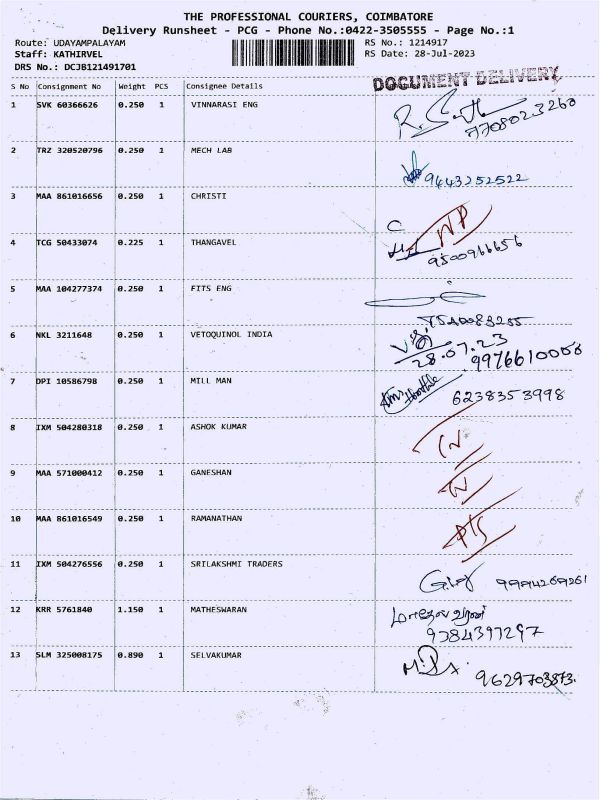 THE PROFESSIONAL COURIERS, COIMBATORE
Delivery Runsheet - PCG - Phone No.:0422-3505555 - Page No.:1
Route: UDAYAMPALAYAM RS No.: 1214917
Staff: KATHIRVEL RS Date: 28-Jul-2023
DRS No.: DCJB121491701
DOCUMENT DELIVERY
S No Consignment No Weight PCS Consignee Details
1 SVK 60366626 0.250 1 VINNARASI ENG
7708023260
2 TRZ 320520796 0.250 1 MECH LAB
9443252522
3 MAA 861016656 0.250 1 CHRISTI
NP
4 TCG 50433074 0.225 1 THANGAVEL
9500966656
5 MAA 104277374 0.250 1 FITS ENG
6 NKL 3211648 0.250 1 VETOQUINOL INDIA
28.07.23
9976610006
7 DPI 10586798 0.250 1 MILL MAN
6238353998
8 IXM 504280318 0.250 1 ASHOK KUMAR
9 MAA 571000412 0.250 1 GANESHAN
10 MAA 861016549 0.250 1 RAMANATHAN
11 IXM 504276556 0.250 1 SRILAKSHMI TRADERS
9994269261
12 KRR 5761840 1.150 1 MATHESWARAN
9384397297
13 SLM 325008175 0.890 1 SELVAKUMAR
9629703873.